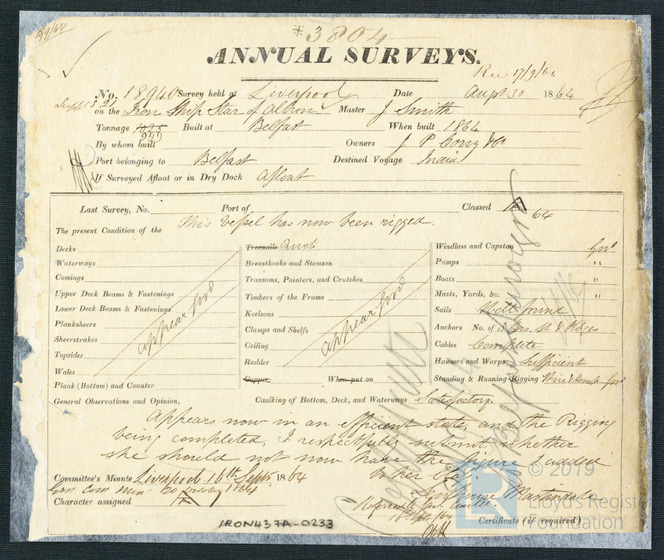 # 3804
29/9/64
ANNUAL SURVEYS.
Rec 17/9/64
No. 18940 Survey held at Liverpool Date Augst 30 1864
Sept 13 21 on the Iron Ship Star of Albion Master J Smith
Tonnage 999 Built at Belfast When built 1864
By whom built Owners J P Corry & Co
Port belonging to Belfast Destined Voyage India
If Surveyed Afloat or in Dry Dock Afloat
Last Survey, No. Port of Classed A 64
The present Condition of the This Vessel has now been rigged
Decks
Waterways
Comings
Upper Deck Beams & Fastenings
Lower Deck Beams & Fastenings
Planksheers
Sheerstrakes
Topsides
Wales
Plank (Bottom) and Counter
appear good
Treenails
Breasthooks and Stemson
Transoms, Pointers, and Crutches
Timbers of the Frame
Keelsons
Clamps and Shelfs
Ceiling
Rudder
Copper When put on
appear good
Windlass and Capston Good
Pumps "
Boats "
Masts, Yards, &c. "
Sails Well found
Anchors No. of
Cables Complete
Hausers and Warps Sufficient
Standing & Running Rigging Wire & Hemp good
General Observations and Opinion, Caulking of Bottom, Deck, and Waterways Satisfactory.
Appears now in an efficient state, and the Rigging
being completed, I respectfully submit whether
she should not now have the figure 1 added
to her
Committee's Minute Liverpool 16th Septr 1864
Character assigned A
Certificate (if required)
IRON437A-0233
© 2019
Lloyd's Register
Foundation
LR